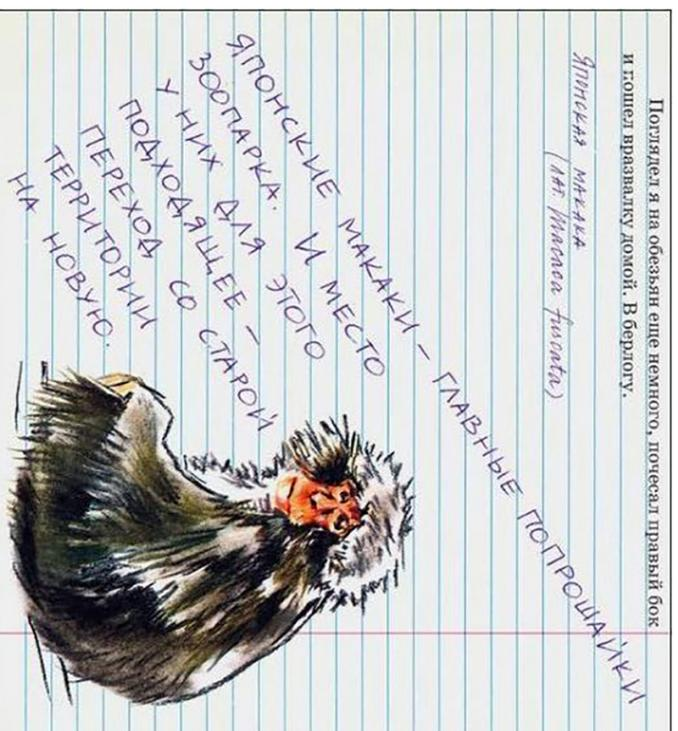 Поглядел я на обезьян еще немного, почесал правый бок
и пошел вразвалку домой. В берлогу.
Японская макака
(лат. Macaca fuscata)
ЯПОНСКИЕ МАКАКИ – ГЛАВНЫЕ ПОПРОШАЙКИ
ЗООПАРКА. И МЕСТО
У НИХ ДЛЯ ЭТОГО
ПОДХОДЯЩЕЕ –
ПЕРЕХОД СО СТАРОЙ
ТЕРРИТОРИИ
НА НОВУЮ.